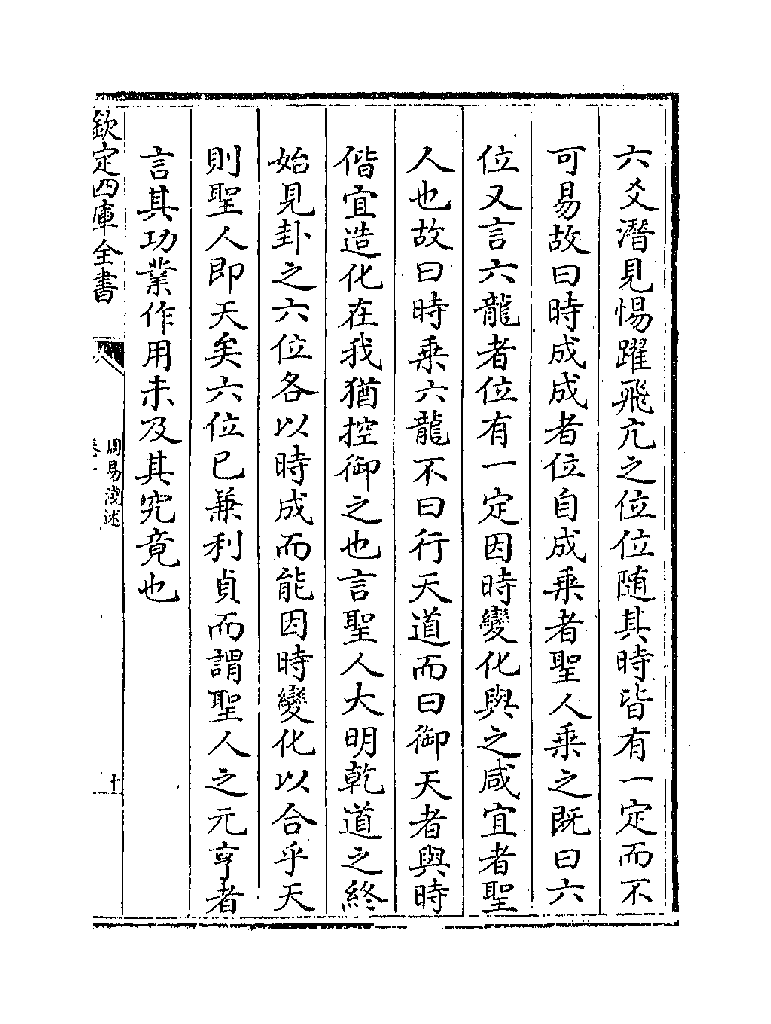 六爻潛見惕躍飛亢之位位随其時皆有一定而不
可易故曰時成成者位自成乘者聖人乘之既曰六
位又言六龍者位有一定因時變化與之咸宜者聖
人也故曰時乘六龍不曰行天道而曰御天者與時
偕宜造化在我猶控御之也言聖人大明乾道之終
始見卦之六位各以時成而能因時變化以合乎天
則聖人即天矣六位已兼利貞而謂聖人之元亨者
言其功業作用未及其究竟也
欽定四庫全書
周易淺述
卷一
十